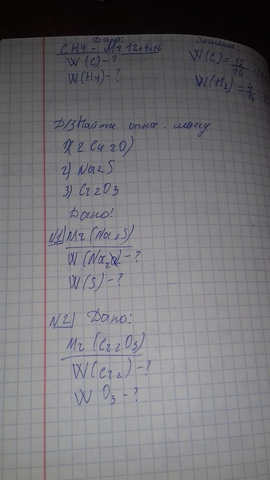 Дано:
CH4 - Mr 12+4=16
W(C) - ?
W(H4) - ?
W(C) = 12/16
W(H2) = 4/16
Д/З Найти отн. мол.
2) Na2S
3) Cr2O3
Дано:
N1) Mr (Na2S)
W(Na2) - ?
W(S) - ?
N2) Дано:
Mr (Cr2O3)
W(Cr2) - ?
W O3 - ?